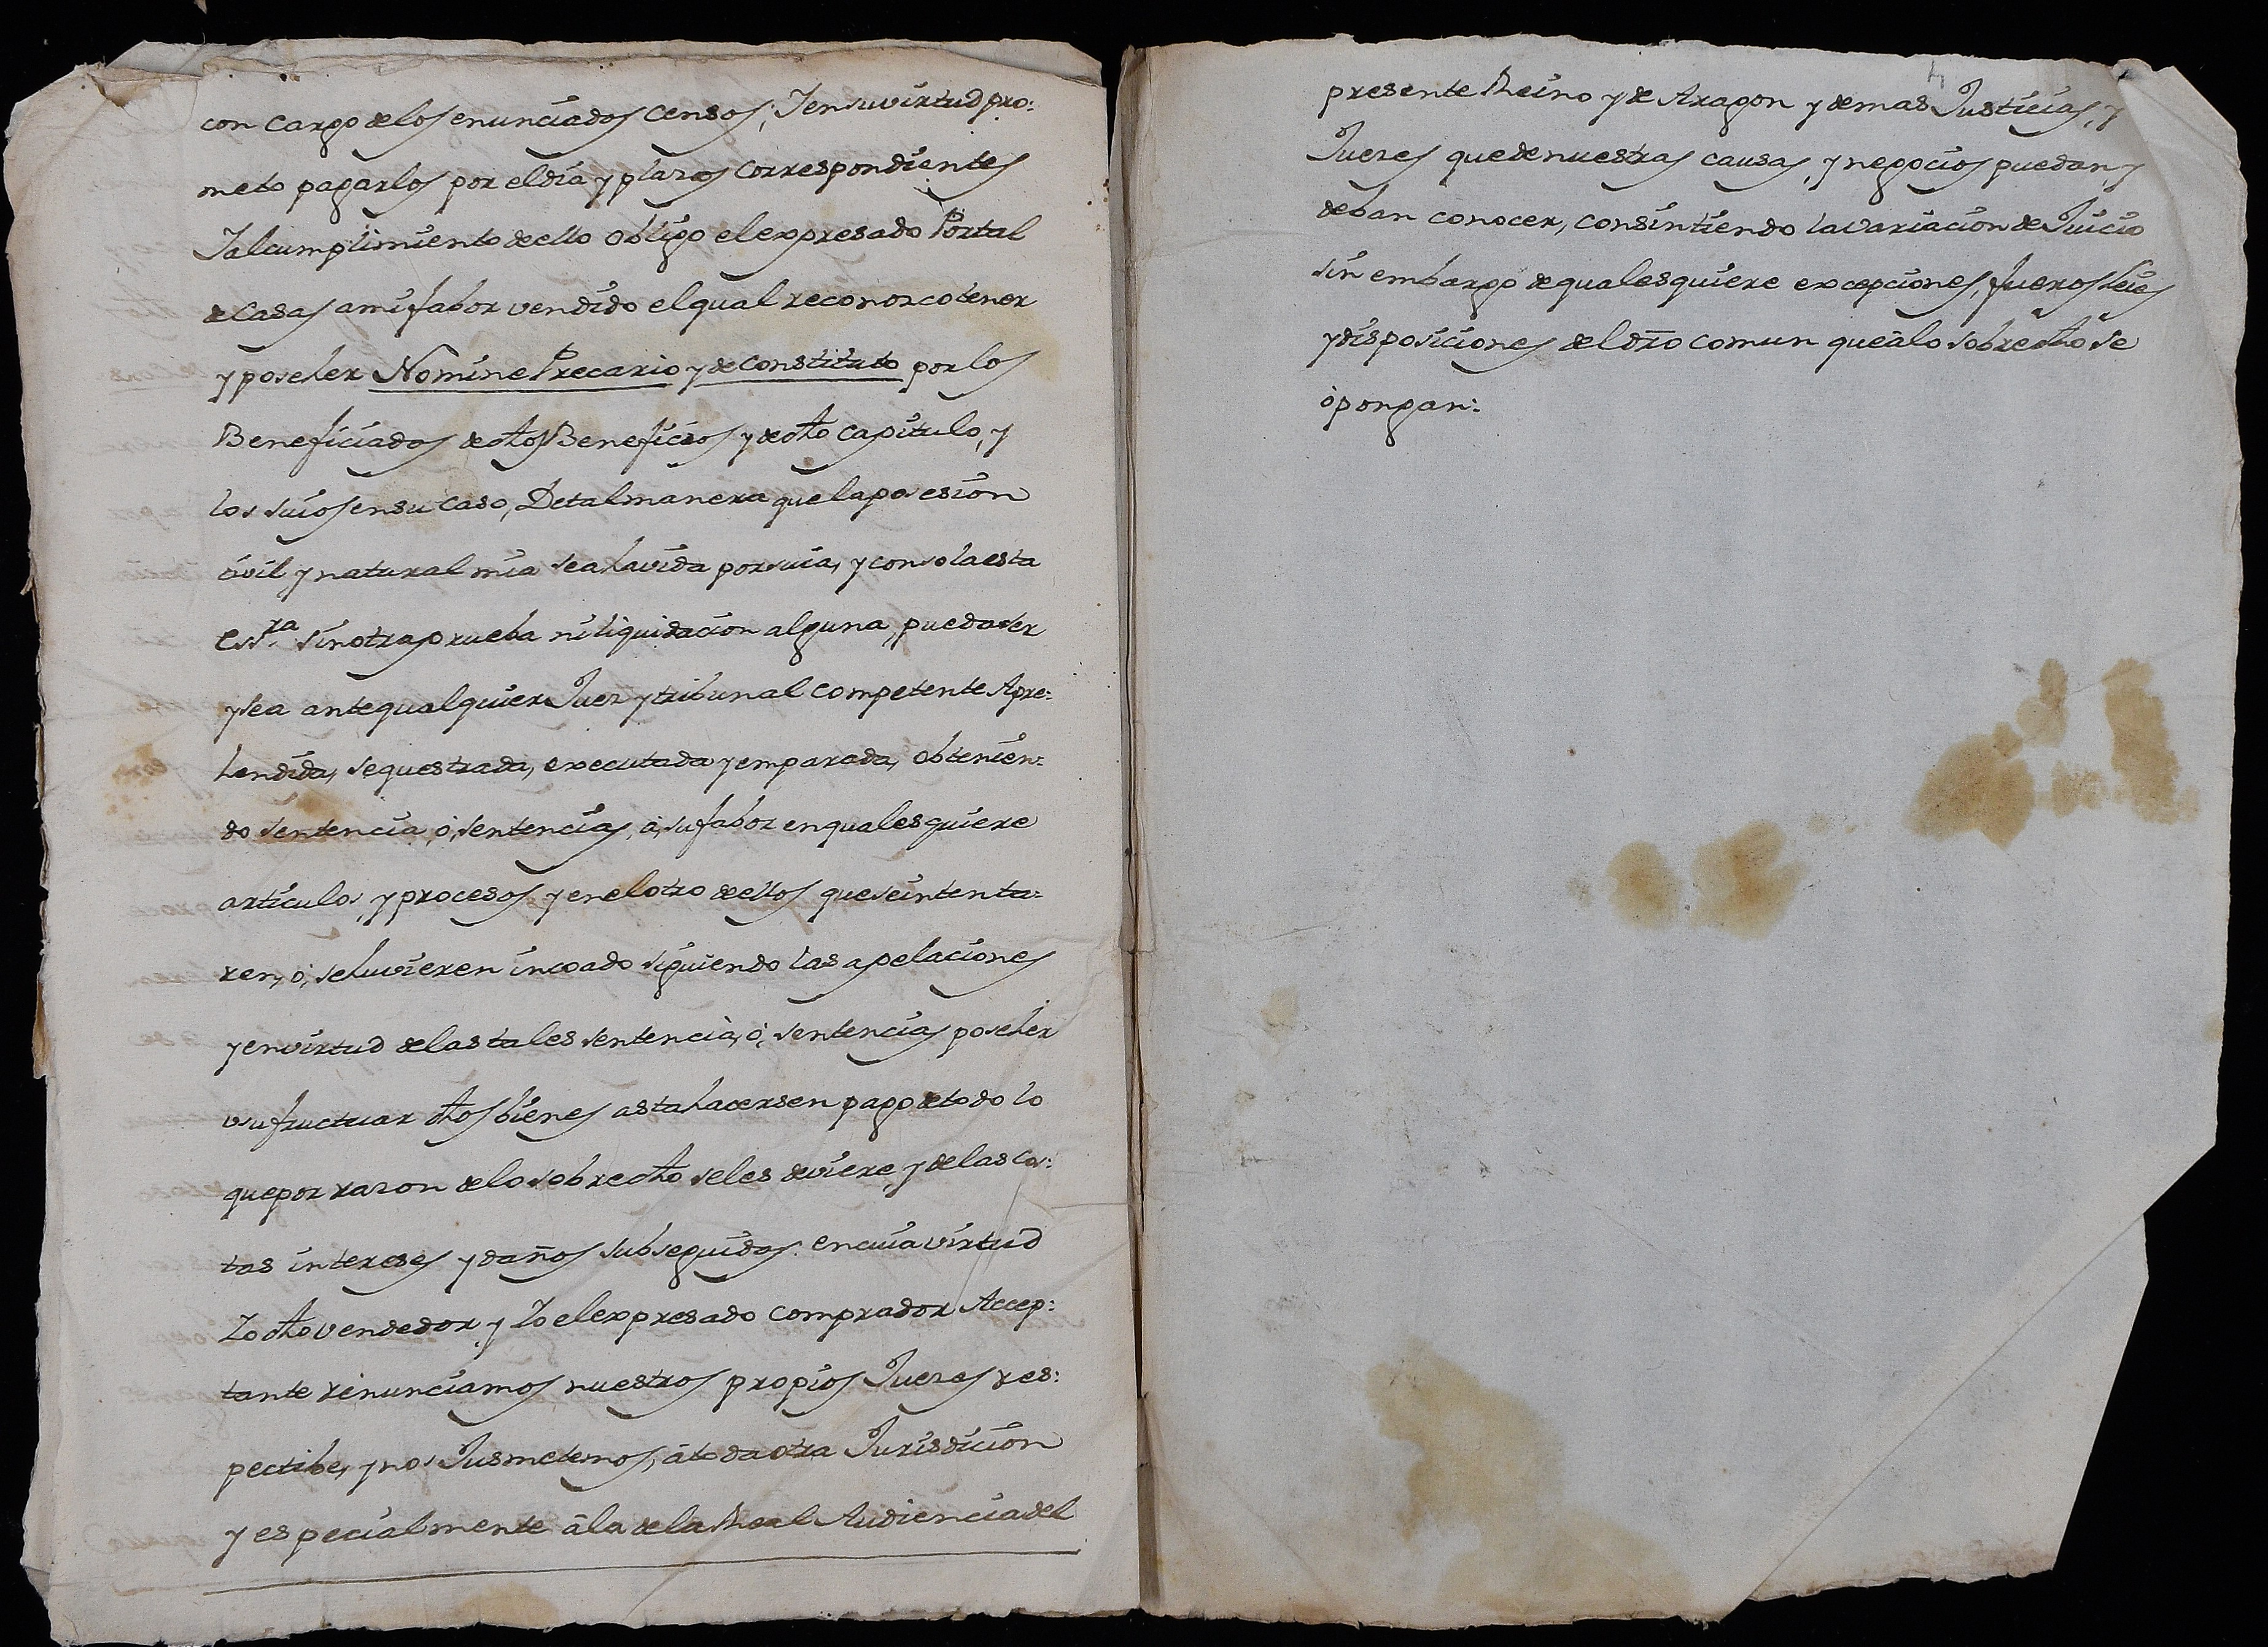 con cargo delos enunciados censos; Y en su virtud pro:
meto pagarlos por el dia y plazos correspondientes
Y al cumplimiento de ello obligo el expresado Portal
de casas a mi fabor vendido el qual reconozco tener
y poseher Nomine Precario y de constituto por los
Beneficiados de dhos Beneficios y de dho capitulo, y
los suios en su caso, De tal manera que la posesion
civil y natural mia sea havida por suia, y con sola esta
essra. sin otra prueba ni liquidacion alguna, pueda ser
y sea ante qualquier Juez y tribunal competente Apre:
hendida, sequestrada, executada y emparada, obtenien:
do sentencia, ó, sentencias, á, su fabor en qualesquiere
articulos, y procesos y en el otro de ellos que se intenta:
ren, ó, se huvieren incoado siguiendo las apelaciones
y en virtud de las tales sentencia, ó, sentencias poseher
usufructuar dhos bienes asta hacersen pago de todo lo
que por razon de lo sobredho se les deviere, y de las cos:
tas intereses y daños subseguidos: en cuia virtud
Yo dho vendedor, y Yo el expresado comprador Accep:
tante renunciamos nuestros propios Juezes res:
pectibe, y nos Jusmetemos, á toda otra Jurisdicion
y especialmente á la de la Real Audiencia del
4
presente Reino y de Aragon y demas Justicias, y
Juezes que de nuestras causas, y negocios puedan, y
deban conocer, consintiendo la variacion de Juicio
sin embargo de qualesquiere excepciones, fueros leies
y disposiciones del dro comun que á lo sobredho se
ópongan: